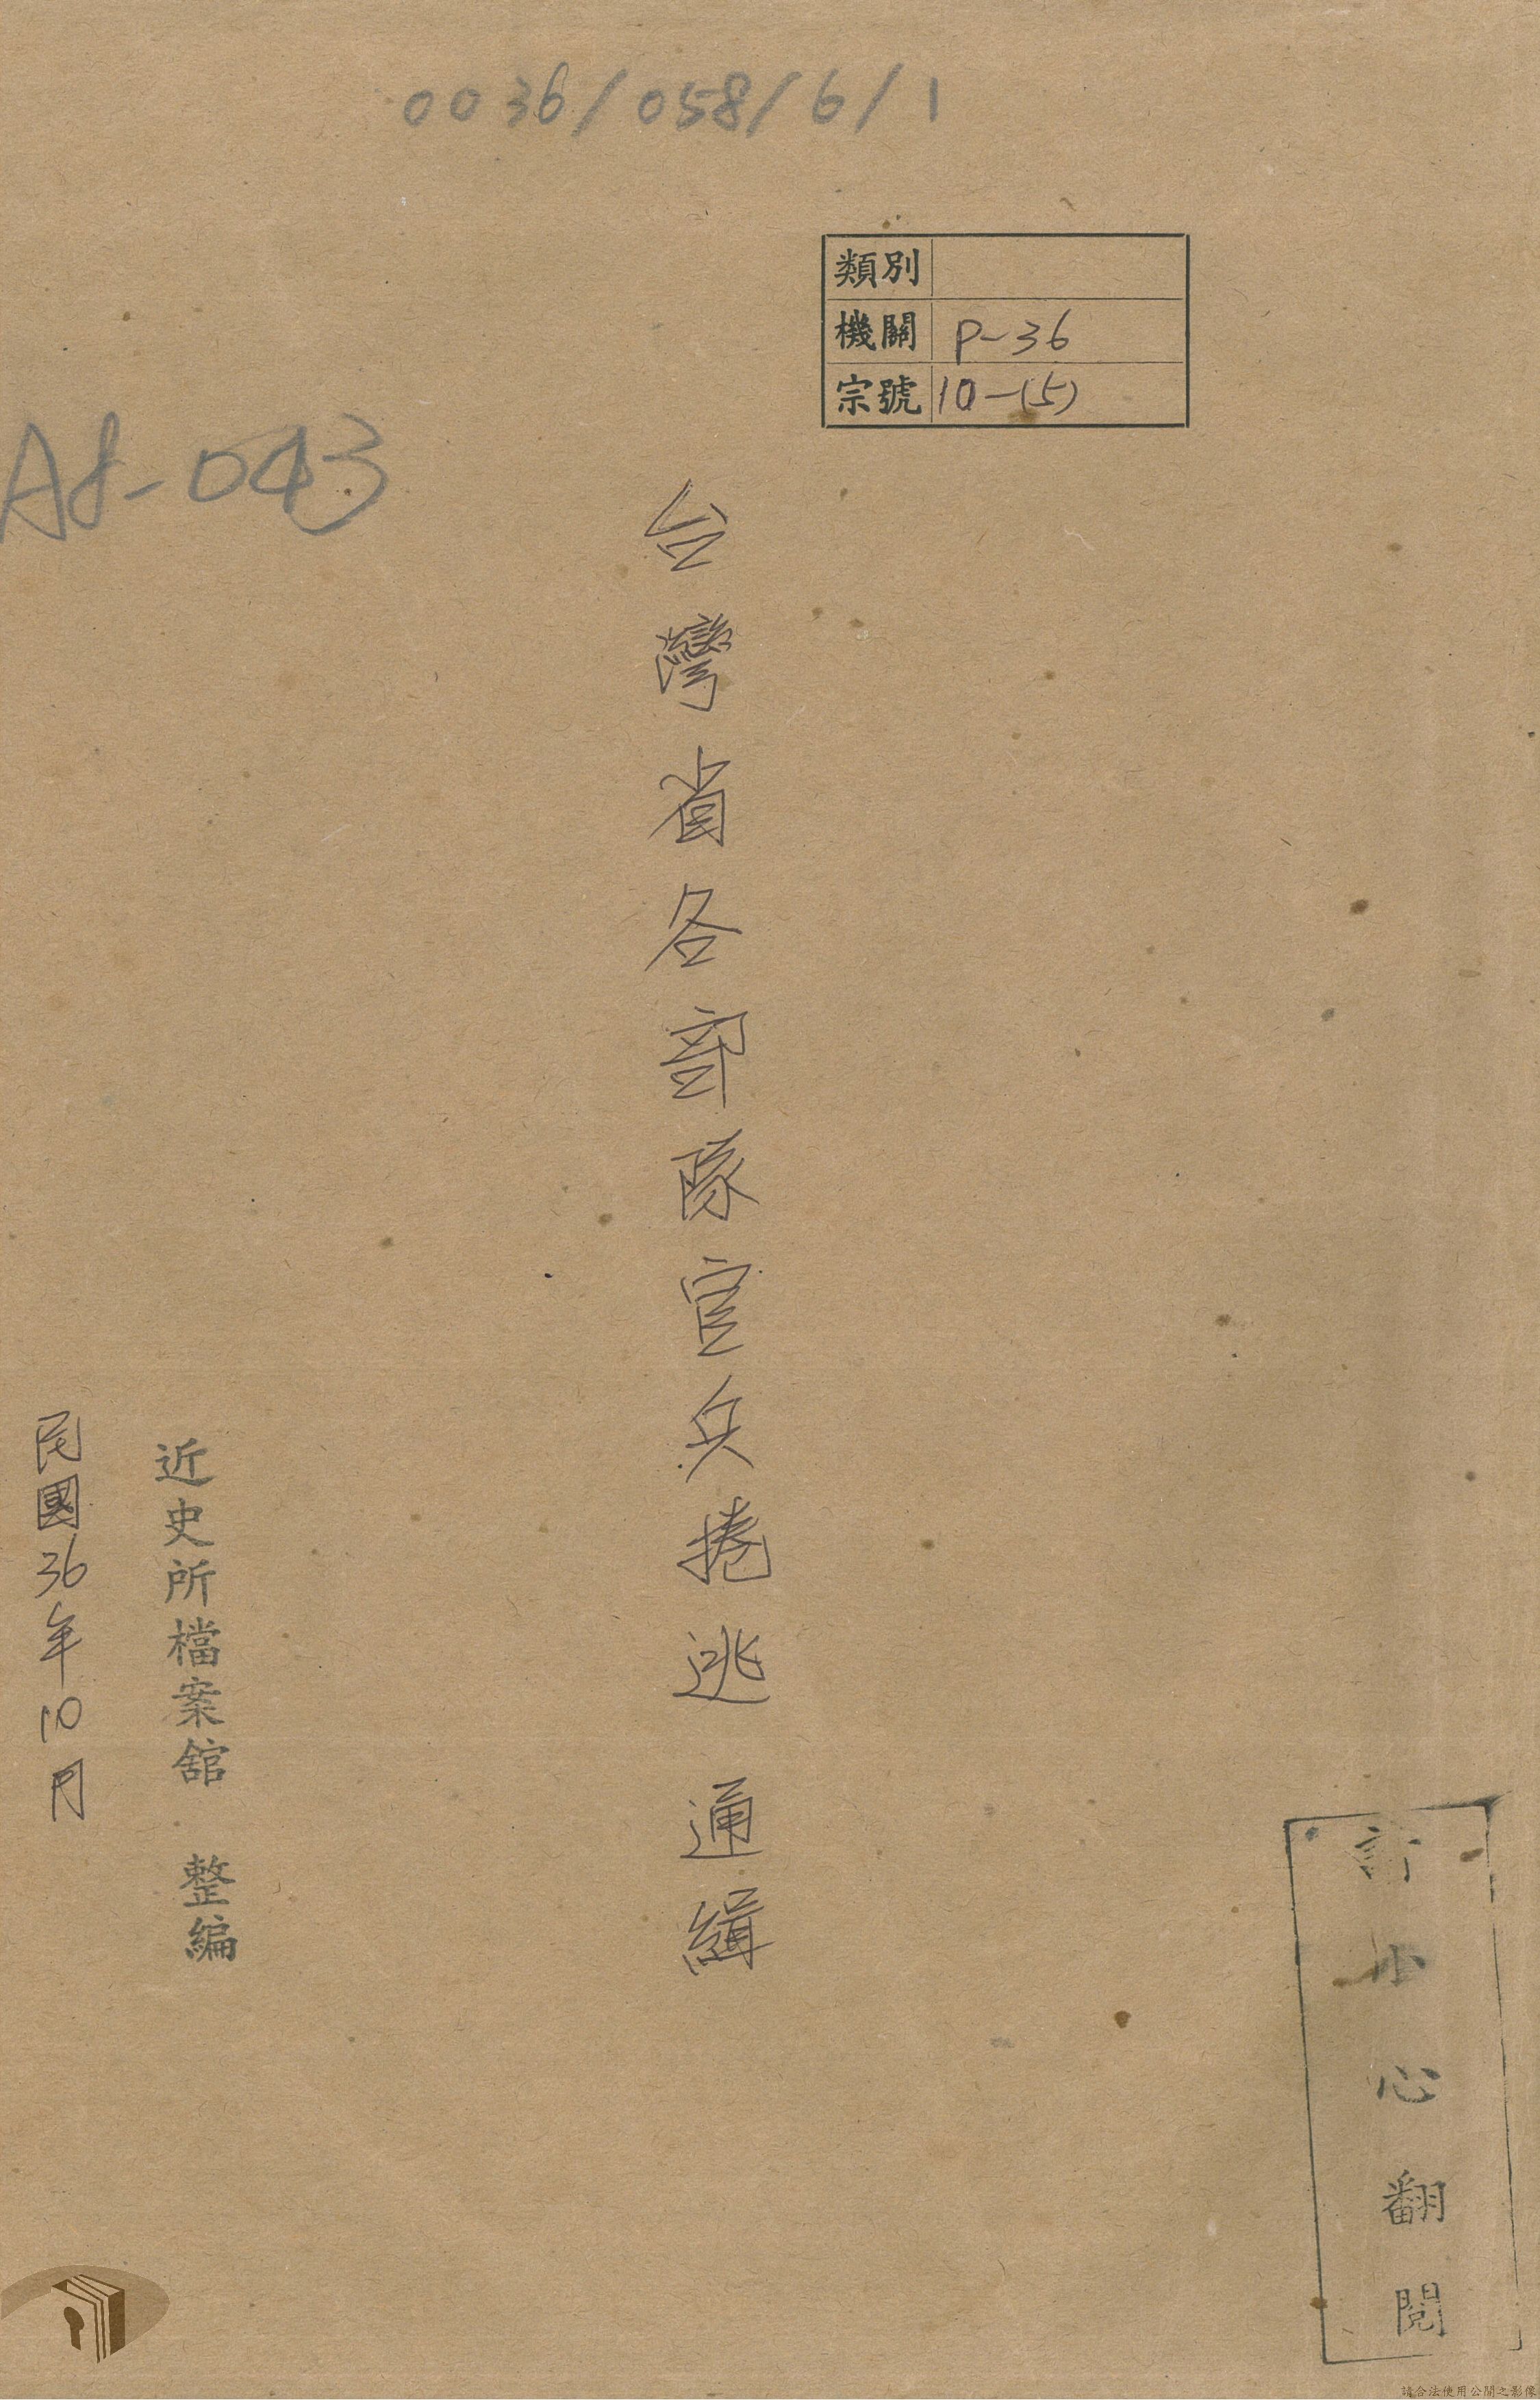 0036/058/6/1
類別
機關 P-36
宗號 10-(5)
A8-043
台灣省各部隊官兵捲逃 通緝
近史所檔案館 整編
民國36年10月
請小心翻閱
請合法使用公開之影像